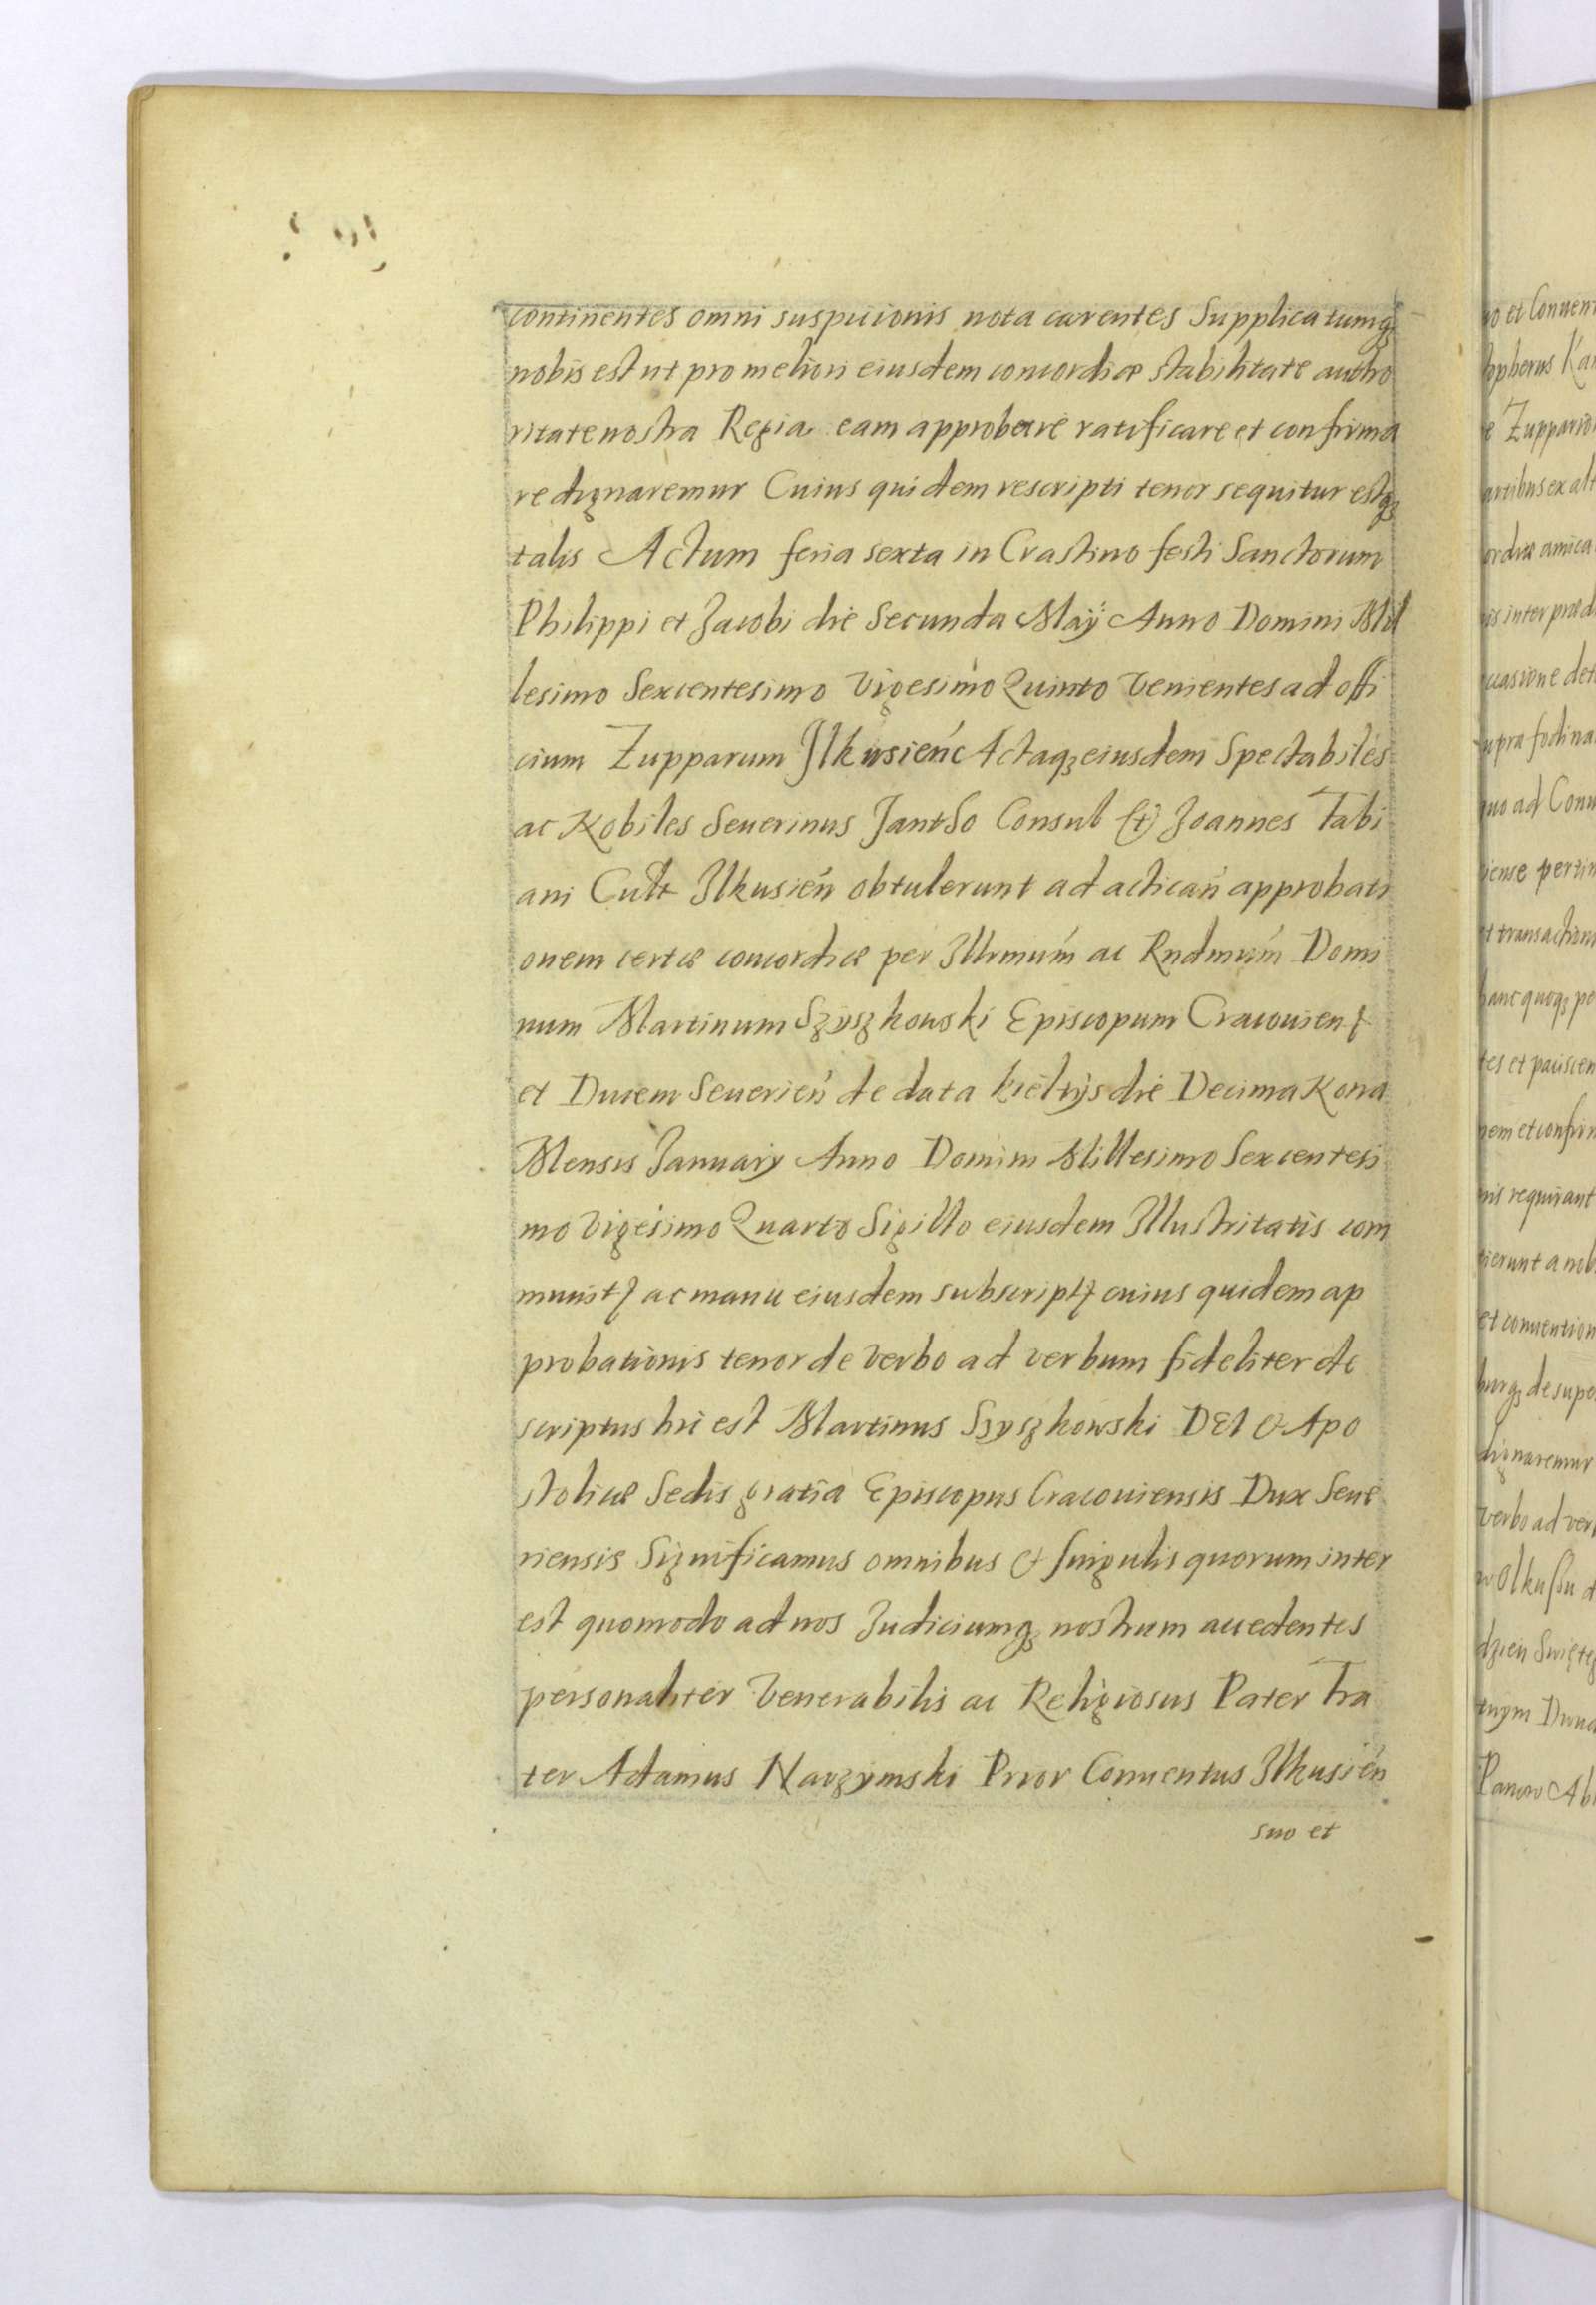 continentes omni suspicionis nota carentes Supplicatumq3
nobis est ut pro meliori eiusdem concordiæ stabilitate autho
ritate nostra Regia eam approbare ratificare et confirma
re dignaremur Cuius quidem rescripti tenor sequitur estq3
talis Actum feria sexta in Crastino festi Sanctorum
Philippi et Jacobi die Secunda Maÿ Anno Domini Mil
lesimo Sexcentesimo Vigesimo Quinto Venientes ad offi
cium Zupparum Ilkusień Actaq3 eiusdem Spectabiles
ac Nobiles Seuerinus Consul et Joannes Fabi
ani Cult Ilkusień obtulerunt ad acticań approbati
onem certæ concordiæ per Illrmum ac Rndmum Domi
num Martinum Szyszkowski Episcopum Cracouien
et Ducem Seuerień de data kieltÿs die Decima Nona
Mensis Januarÿ Anno Domini Millesimo Sexcentesi
mo Vigesimo Quarto Sigillo eiusdem Illustritatis com
munit ac manu eiusdem subscript cuius quidem ap
probationis tenor de verbo ad verbum fideliter de
scriptus hic est Martinus Szyszkowski DEI & Apo
stolicæ Sedis gratia Episcopus Cracouiensis Dux Seue
riensis Significamus omnibus & singulis quorum inter
est quomodo ad nos Judiciumq3 nostrum accedentes
personaliter Venerabilis ac Religiosus Pater Fra
ter Adamus Narzymski Prior Conuentus Ilkusień
suo et